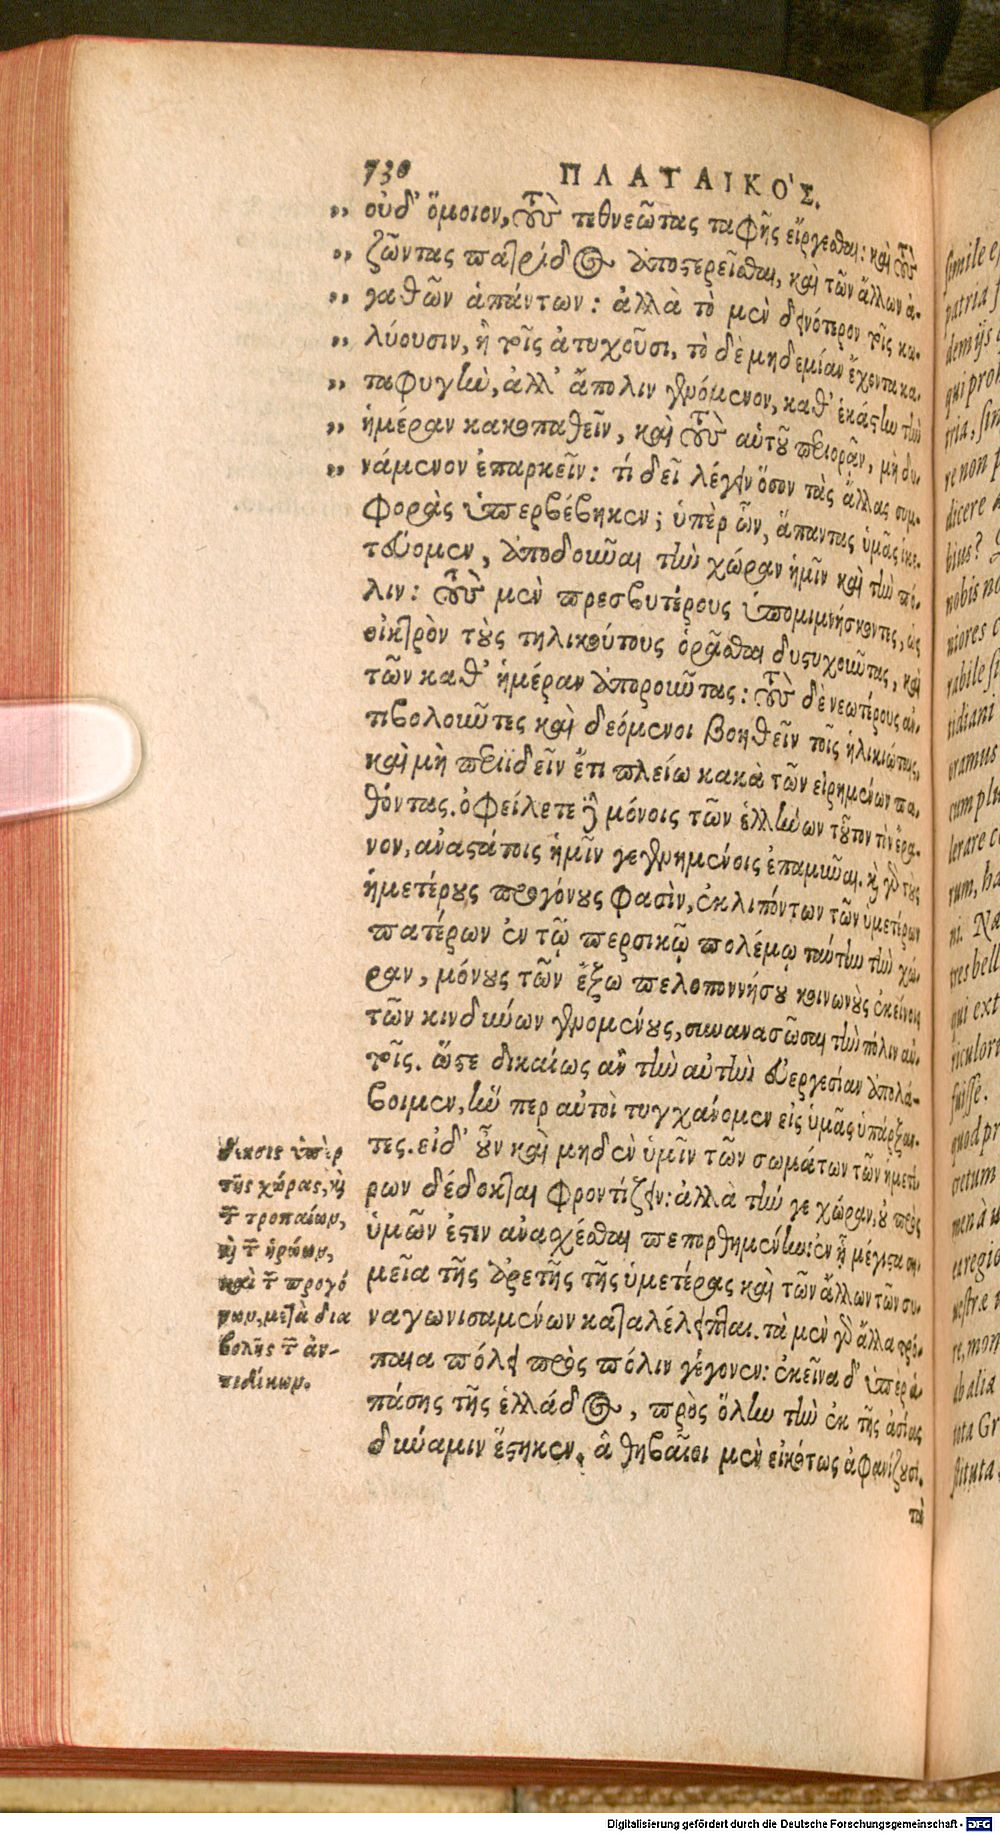 730 ΠΛΑΤΑΙΚΟ'Σ.
„ οὐδ' ὅμοιον, τοὺς τεθνεῶτας ταφῆς εἴργεσθαι: καὶ τοὺς
„ ζῶντας πατρίδος ἀποστερεῖσθαι, καὶ τῶν ἄλλων ἀ-
„ γαθῶν ἁπάντων: ἀλλὰ τὸ μὲν δεινότερον τοῖς κω-
„ λύουσιν, ἢ τοῖς ἀτυχοῦσι, τὸ δὲ μηδεμίαν ἔχοντα κα-
„ ταφυγὴν, ἀλλ' ἄπολιν γενόμενον, καθ' ἑκάστην τὴν
„ ἡμέραν κακοπαθεῖν, καὶ τοὺς αὑτοῦ περιορᾶν, μὴ δυ-
„ νάμενον ἐπαρκεῖν: τί δεῖ λέγειν ὅσον τὰς ἄλλας συμ-
φορὰς ὑπερβέβηκεν; ὑπὲρ ὧν, ἅπαντας ὑμᾶς ἱκε-
τεύομεν, ἀποδοῦναι τὴν χώραν ἡμῖν καὶ τὴν πό-
λιν: τοὺς μὲν πρεσβυτέρους ὑπομιμνήσκοντες, ὡς
οἰκτρὸν τοὺς τηλικούτους ὁρᾶσθαι δυστυχοῦντας, καὶ
τῶν καθ' ἡμέραν ἀποροῦντας: τοὺς δὲ νεωτέρους ἀν-
τιβολοῦντες καὶ δεόμενοι βοηθεῖν τοῖς ἡλικιώταις,
καὶ μὴ περιϊδεῖν ἔτι πλείω κακὰ τῶν εἰρημένων πα-
θόντας. ὀφείλετε δὲ μόνοις τῶν ἑλλήνων τοῦτον τὸν ἔρα-
νον, ἀναστάτοις ἡμῖν γεγενημένοις ἐπαμῦναι. καὶ γὰρ τοὺς
ἡμετέρους προγόνους φασὶν, ἐκλιπόντων τῶν ὑμετέρων
πατέρων ἐν τῷ περσικῷ πολέμῳ ταύτην τὴν χώ-
ραν, μόνους τῶν ἔξω πελοποννήσου κοινωνοὺς ἐκείνοις
τῶν κινδύνων γενομένους, συνανασῶσαι τὴν πόλιν αὐ-
τοῖς. ὥστε δικαίως ἂν τὴν αὐτὴν εὐεργεσίαν ἀπολά-
βοιμεν, ἥν περ αὐτοὶ τυγχάνομεν εἰς ὑμᾶς ὑπάρξαν-
τες. εἰ δ' οὖν καὶ μηδὲν ὑμῖν τῶν σωμάτων τῶν ἡμετέ-
ρων δέδοκται φροντίζειν: ἀλλὰ τήν γε χώραν, οὐ πρὸς
ὑμῶν ἐστιν ἀνασχέσθαι πεπορθημένην: ἐν ᾗ μέγιστα ση-
μεῖα τῆς ἀρετῆς τῆς ὑμετέρας καὶ τῶν ἄλλων τῶν συ-
ναγωνισαμένων καταλέλειπται. τὰ μὲν γὰρ ἄλλα τρό-
παια πόλει πρὸς πόλιν γέγονεν: ἐκεῖνα δ' ὑπὲρ ἁ-
πάσης τῆς ἑλλάδος, πρὸς ὅλην τὴν ἐκ τῆς ἀσίας
δύναμιν ἕστηκεν. ἃ θηβαῖοι μὲν εἰκότως ἀφανίζουσι.
τὰ
δέησις ὑπὲρ
τῆς χώρας, καὶ
τῶν τροπαίων,
καὶ τῶν ἡρώων,
καὶ τῶν προγό
νων, μετὰ δια
βολῆς τῶν ἀν-
τιδίκων.
simile e
patria f
demijs
qui proh
tria, sin
re non p
dicere
bius?
nobis no
niores c
rabile si
tidiani
oramus
cum plu
lerare c
rum, ha
ni. Na
tres bell
qui ext
riculor
fuisse.
quod pr
cretum
men à u
ea regio
uestræ
re, mon
ab alia
tota Gr
stituta
Digitalisierung gefördert durch die Deutsche Forschungsgemeinschaft - DFG